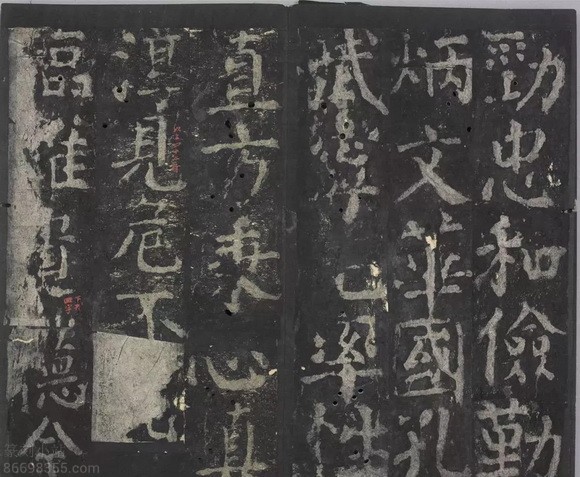 勁忠和儉勤
炳文華國孔
武己率性
直方秉心真
淳見危不
臨德
86698355.com